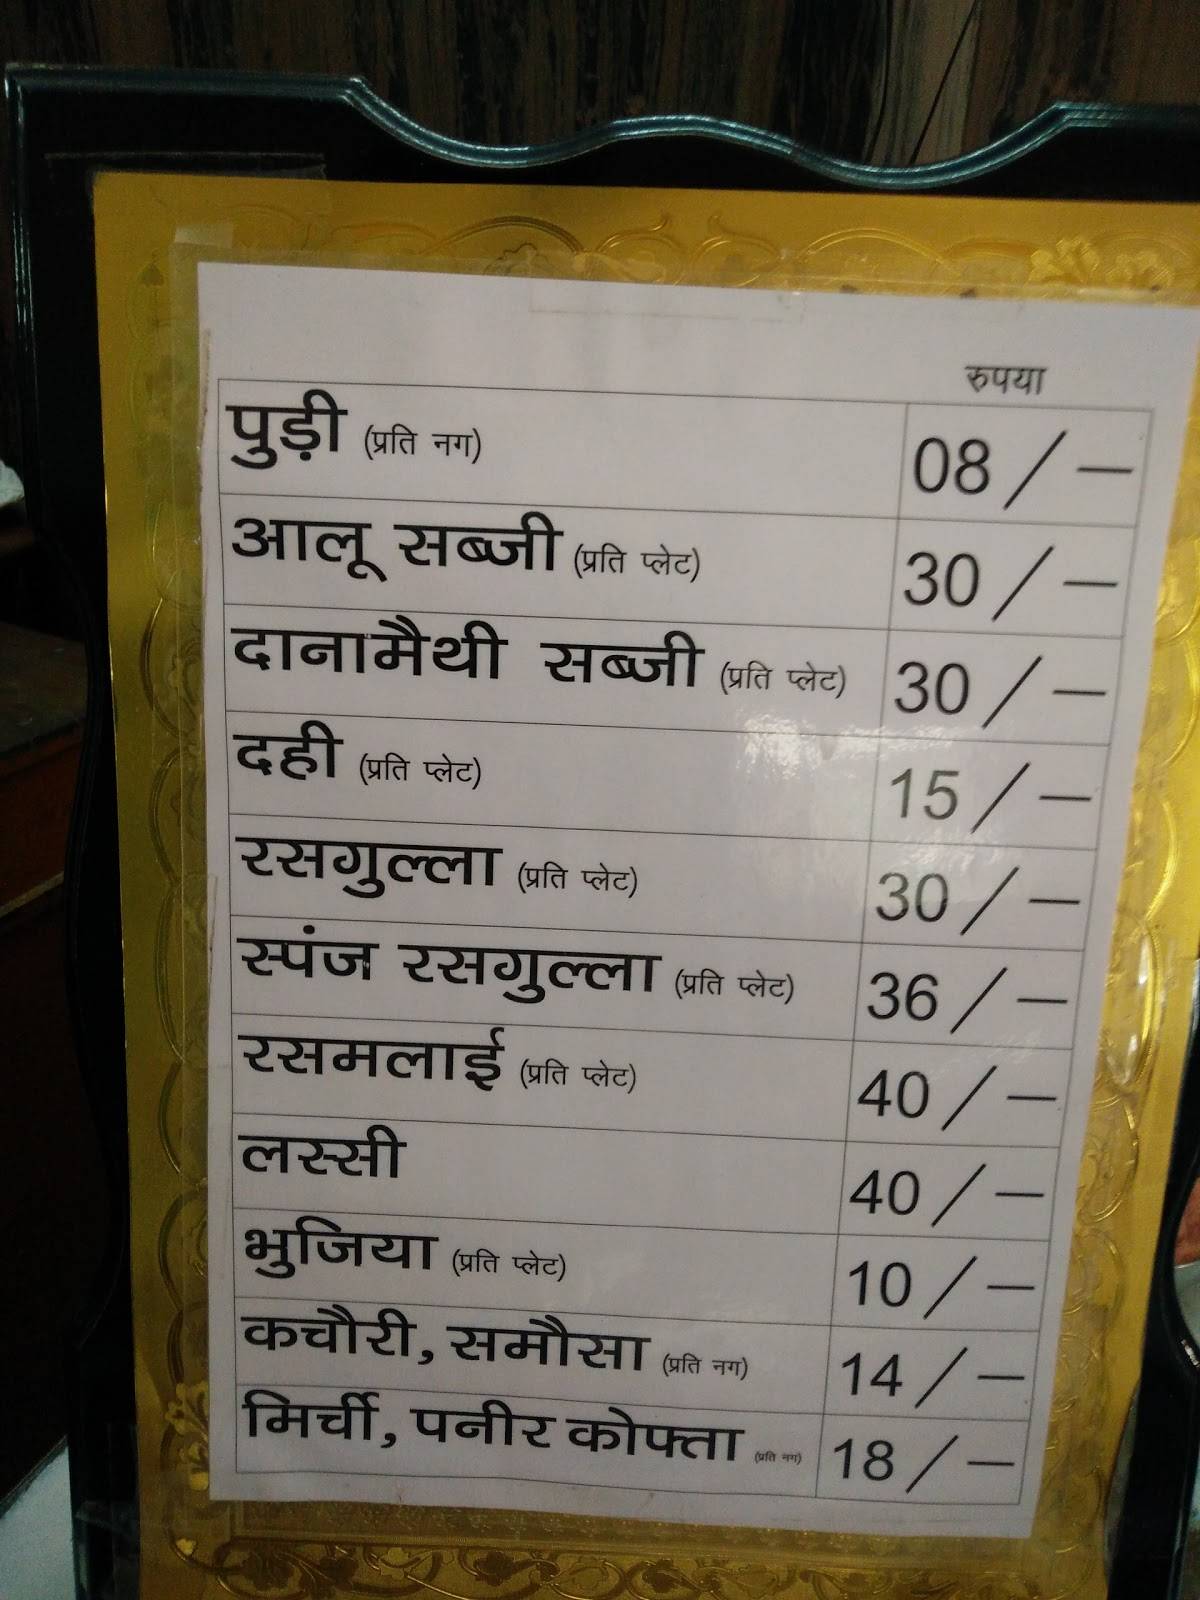 रुपया
पुड़ी (प्रति नग) 08/–
आलू सब्जी (प्रति प्लेट) 30/–
दानामैथी सब्जी (प्रति प्लेट) 30/–
दही (प्रति प्लेट) 15/–
रसगुल्ला (प्रति प्लेट) 30/–
स्पंज रसगुल्ला (प्रति प्लेट) 36/–
रसमलाई (प्रति प्लेट) 40/–
लस्सी 40/–
भुजिया (प्रति प्लेट) 10/–
कचौरी, समौसा (प्रति नग) 14/–
मिर्ची, पनीर कोफ्ता (प्रति नग) 18/–